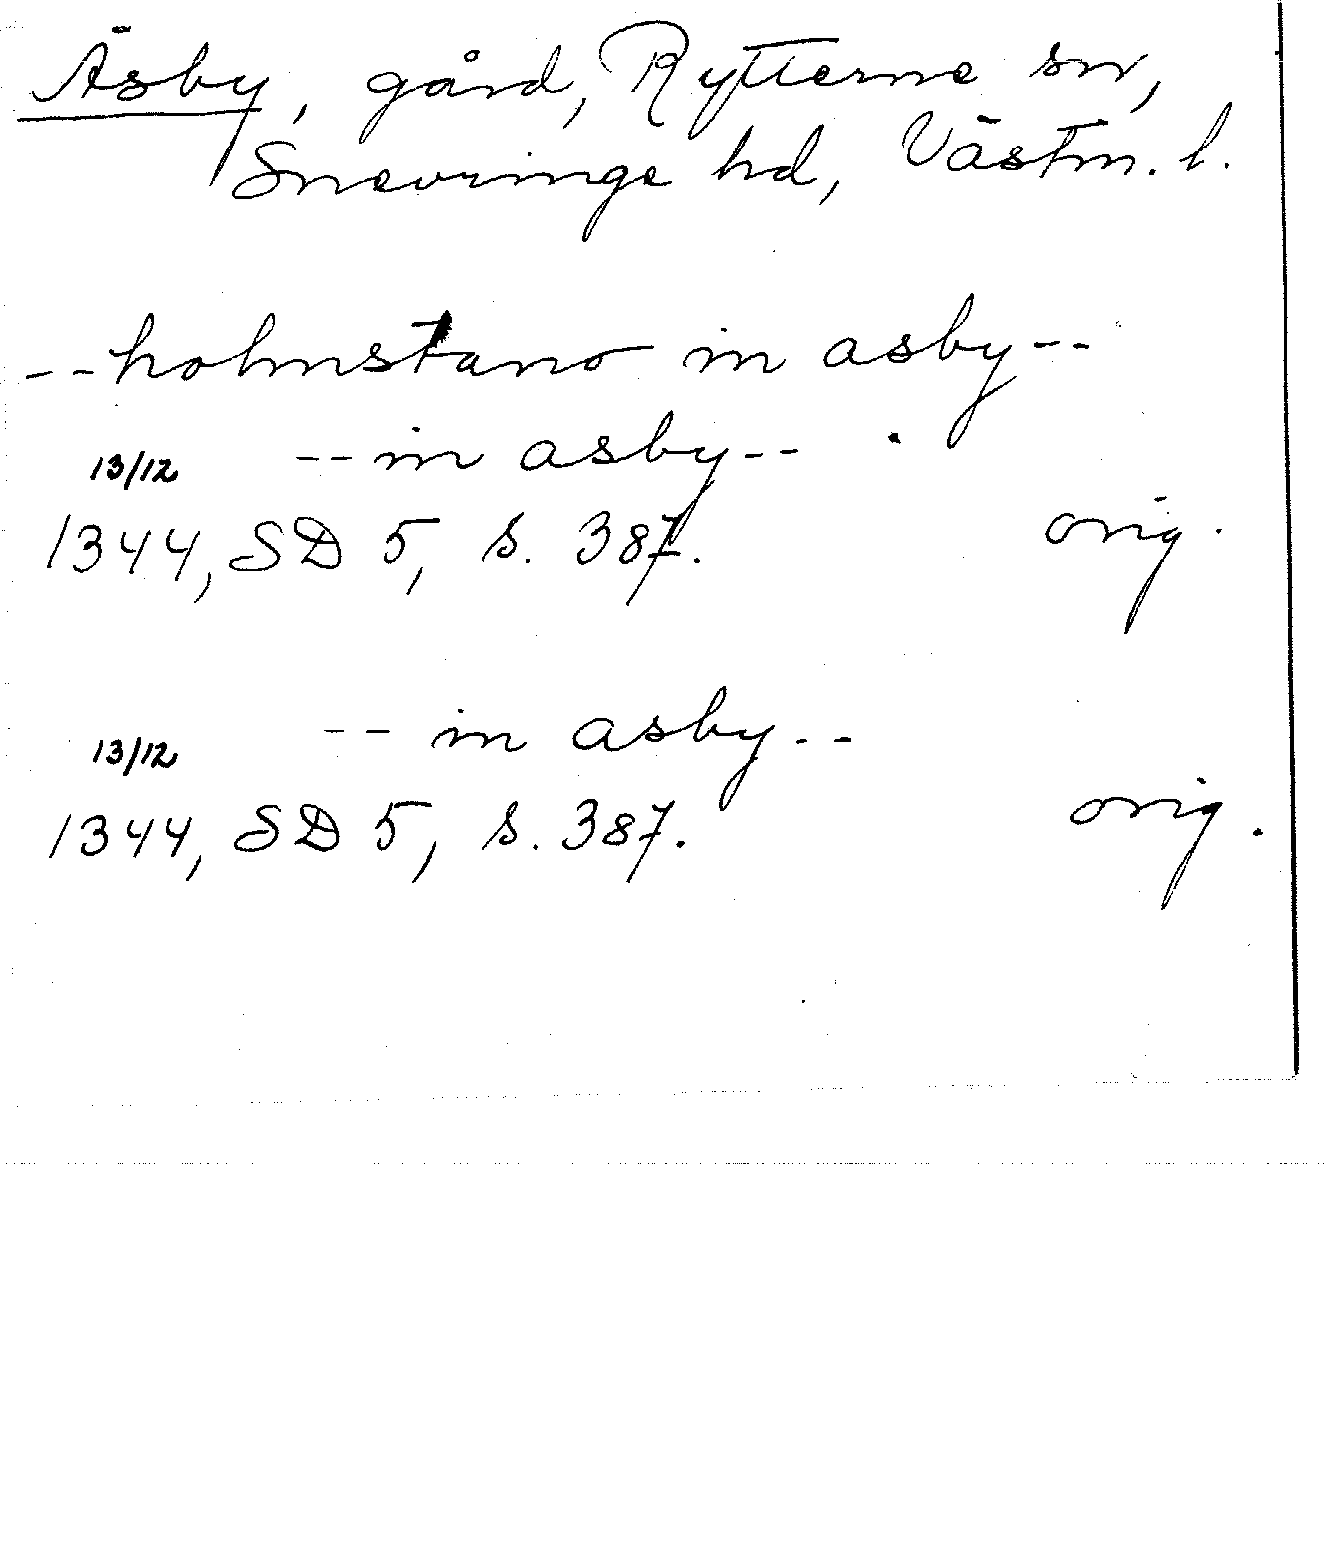 Äsby, gård, Rytterne sn,
Snevringe hd, Västm. l.
--holmstano in asby--
13/12 --in asby--
1344, SD 5, s. 387. orig.
13/12 -- in asby--
1344, SD 5, s. 387. orig.